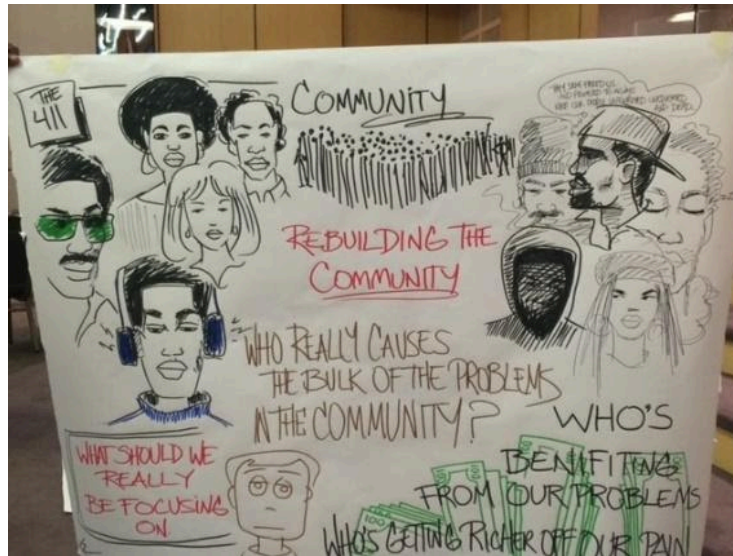 THE
411
COMMUNITY
THEY SAY FREED US
REBUILDING THE
COMMUNITY
WHO REALLY CAUSES
THE BULK OF THE PROBLEMS
IN THE COMMUNITY?
WHAT SHOULD WE
REALLY
BE FOCUSING
ON.
WHO'S
BENIFITING
FROM OUR PROBLEMS
WHO'S GETTING RICHER OFF OUR PAIN